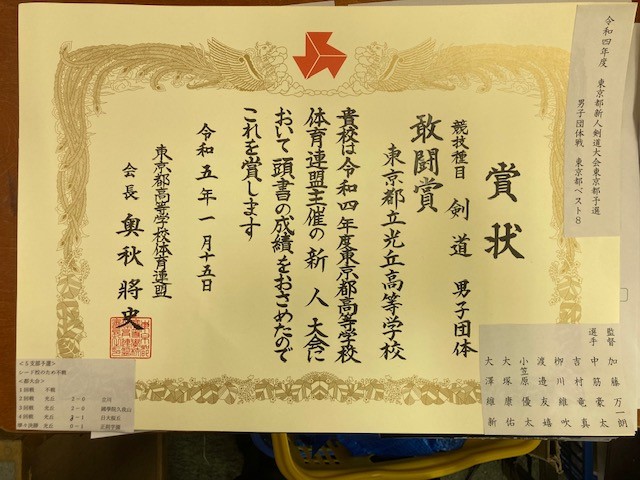 賞状
競技種目 剣道 男子団体
敢闘賞
東京都立光丘高等学校
貴校は令和四年度東京都高等学校
体育連盟主催の新人大会に
おいて頭書の成績をおさめたので
これを賞します
令和五年一月十五日
東京都高等学校体育連盟
会長 奥秋將史
令和四年度 東京都新人剣道大会東京都予選
男子団体戦 東京都ベスト8
監督 加藤 万一朗
選手 中筋 豪太
吉村 竜真
栁川 維吹
渡邊 友嬉
小笠原 優太
大塚 康佑
大澤 維新
シード校のため不戦
<都大会>
1回戦 不戦
2回戦 光丘 2-0 立川
3回戦 光丘 2-0 國學院久我山
4回戦 光丘 -1 日大桜丘
準々決勝 光丘 0-1 正則学園